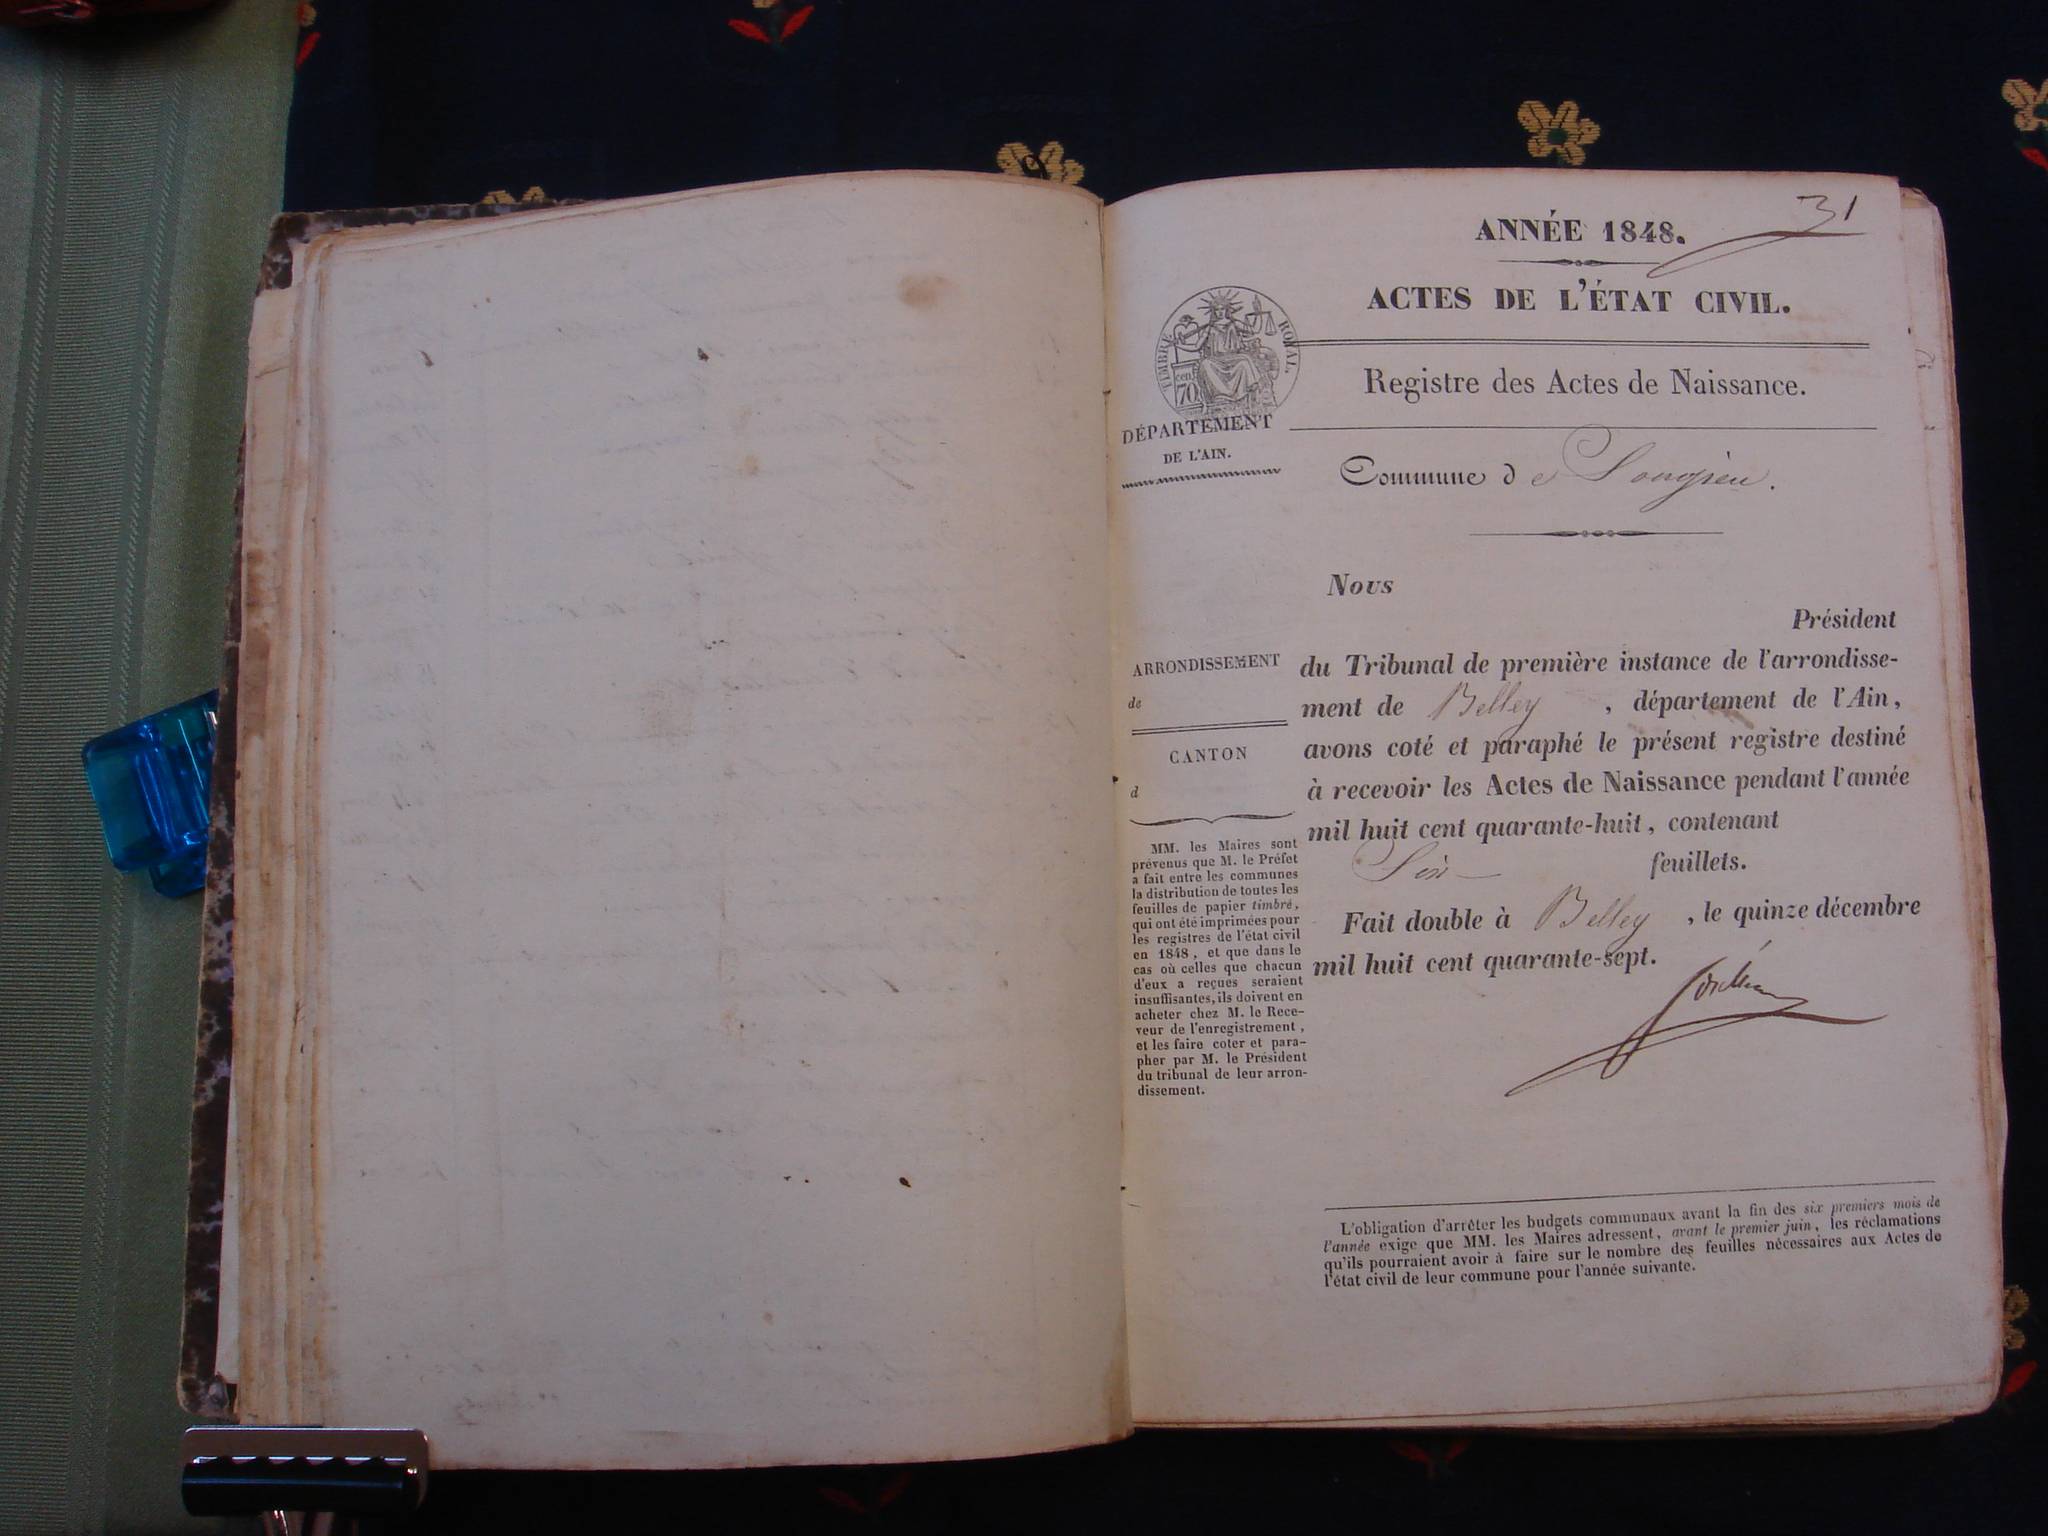 31
ANNÉE 1848.
ACTES DE L'ÉTAT CIVIL.
TIMBRE ROYAL.
cen. 70
Registre des Actes de Naissance.
DÉPARTEMENT
DE L'AIN.
Commune de Songieu.
Nous
Président
du Tribunal de première instance de l'arrondisse-
ment de Belley , département de l'Ain,
avons coté et paraphé le présent registre destiné
à recevoir les Actes de Naissance pendant l'année
mil huit cent quarante-huit, contenant
Six feuillets.
Fait double à Belley , le quinze décembre
mil huit cent quarante-sept.
ARRONDISSEMENT
de
CANTON
d
MM. les Maires sont
prévenus que M. le Préfet
a fait entre les communes
la distribution de toutes les
feuilles de papier timbré,
qui ont été imprimées pour
les registres de l'état civil
en 1848, et que dans le
cas où celles que chacun
d'eux a reçues seraient
insuffisantes, ils doivent en
acheter chez M. le Rece-
veur de l'enregistrement,
et les faire coter et para-
pher par M. le Président
du tribunal de leur arron-
dissement.
L'obligation d'arrêter les budgets communaux avant la fin des six premiers mois de
l'année exige que MM. les Maires adressent, avant le premier juin, les réclamations
qu'ils pourraient avoir à faire sur le nombre des feuilles nécessaires aux Actes de
l'état civil de leur commune pour l'année suivante.